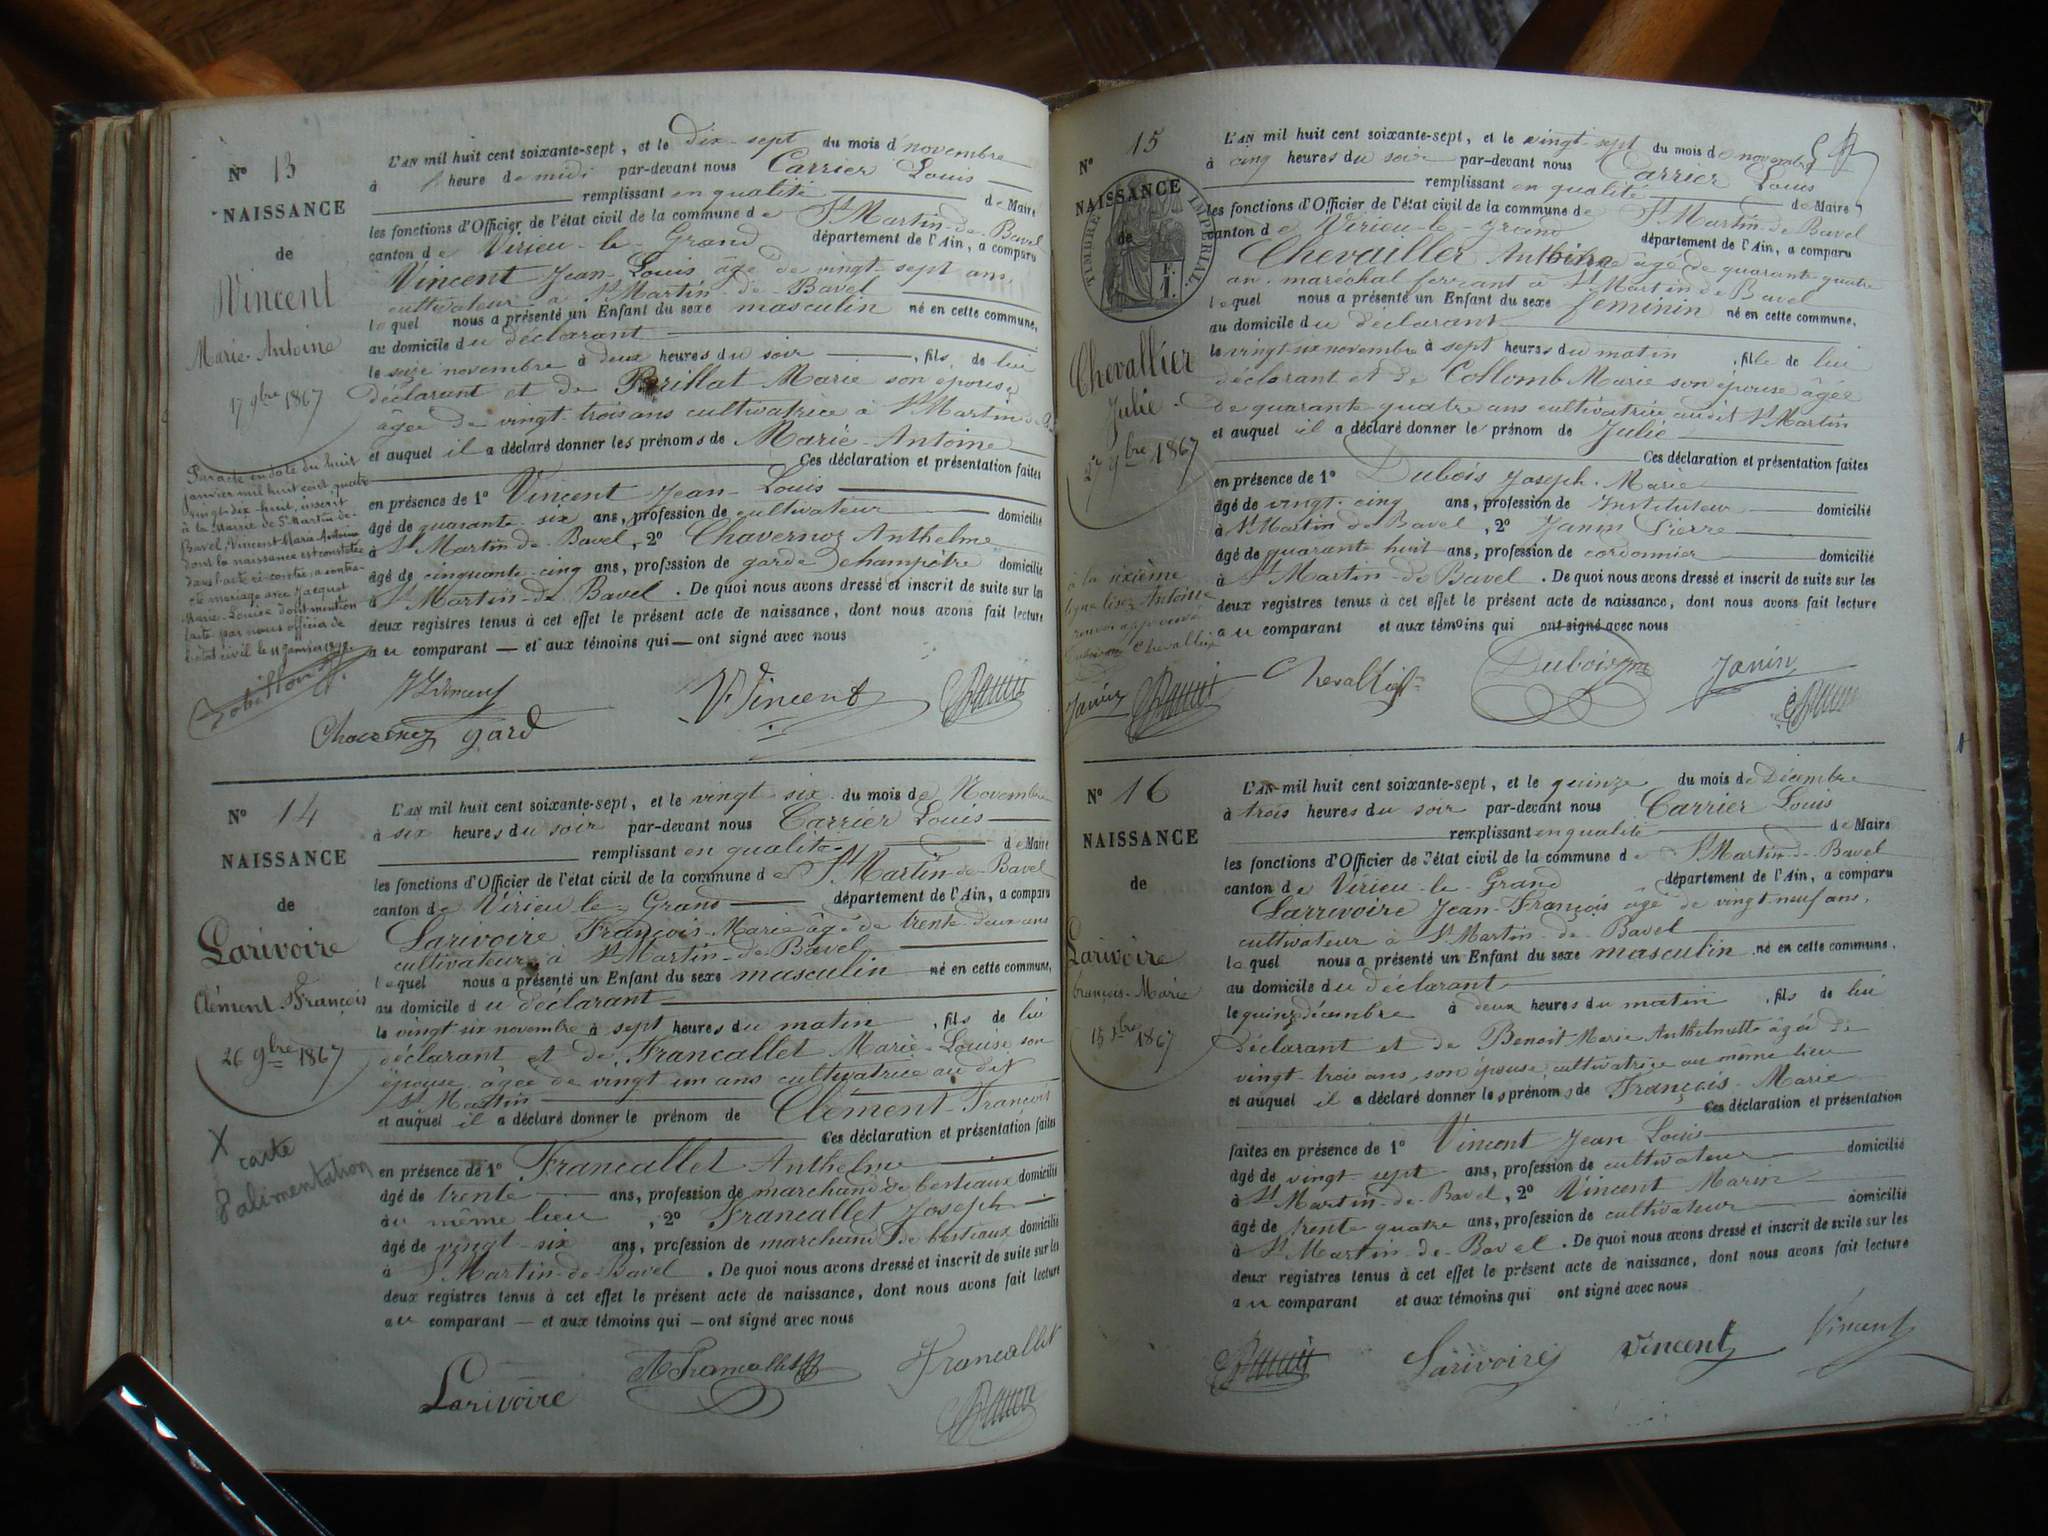 N° 13
NAISSANCE
de
Vincent
Marie-Antoine
17 9bre 1867
Par acte en date du huit
janvier mil huit cent quatre
vingt dix-huit, inscrit
à la Mairie de St Martin-de-
Bavel, Vincent Marie-Antoine
dont la naissance est constatée
dans l'acte ci-contre, a contrac-
té mariage avec Jacquet
Marie-Louise dont mention
faite par nous officier de
l'état civil le 11 Janvier 1898.
L'AN mil huit cent soixante-sept, et le dix-sept du mois d'novembre
à heure de midi par-devant nous Carrier Louis
remplissant en qualité de Maire
les fonctions d'Officier de l'état civil de la commune de St Martin-de-Bavel
canton de Virieu-le-Grand département de l'Ain, a comparu
Vincent Jean-Louis âgé de vingt-sept ans,
cultivateur à St Martin-de-Bavel
lequel nous a présenté un Enfant du sexe masculin né en cette commune,
au domicile du déclarant
le seize novembre à deux heures du soir, fils de lui
déclarant et de Perillat Marie son épouse
âgée de vingt-trois ans cultivatrice à St Martin de
et auquel il a déclaré donner les prénoms de Marie-Antoine
Ces déclaration et présentation faites
en présence de 1° Vincent Jean-Louis
âgé de quarante-six ans, profession de cultivateur domicilié
à St Martin-de-Bavel, 2° Chavernoz Anthelme
âgé de cinquante-cinq ans, profession de garde champêtre domicilié
à St Martin-de-Bavel. De quoi nous avons dressé et inscrit de suite sur les
deux registres tenus à cet effet le présent acte de naissance, dont nous avons fait lecture
au comparant — et aux témoins qui — ont signé avec nous
V Vincent
Chavernoz gard
N° 14
NAISSANCE
de
Larivoire
Clément-François
26 9bre 1867
X carte
d'alimentation
L'AN mil huit cent soixante-sept, et le vingt six du mois de Novembre
à six heures du soir par-devant nous Carrier Louis
remplissant en qualité de Maire
les fonctions d'Officier de l'état civil de la commune de St Martin-de-Bavel
canton de Virieu-le-Grand département de l'Ain, a comparu
Larivoire François-Marie âgé de trente deux ans
cultivateur à St Martin-de-Bavel
lequel nous a présenté un Enfant du sexe masculin né en cette commune,
au domicile du déclarant
le vingt six novembre à sept heures du matin, fils de lui
déclarant et de Francallet Marie-Louise son
épouse âgée de vingt un ans cultivatrice au dit
St Martin
et auquel il a déclaré donner le prénom de Clément-François
Ces déclaration et présentation faites
en présence de 1° Francallet Anthelme
âgé de trente ans, profession de marchand de bestiaux domicilié
au même lieu, 2° Francallet Joseph
âgé de vingt-six ans, profession de marchand de bestiaux domicilié
à St Martin-de-Bavel. De quoi nous avons dressé et inscrit de suite sur les
deux registres tenus à cet effet le présent acte de naissance, dont nous avons fait lecture
au comparant — et aux témoins qui — ont signé avec nous
Larivoire A Francallet Francallet
N° 15
NAISSANCE
de
TIMBRE IMPERIAL.
1 F.
Chevallier
Julie
27 9bre 1867
à la sixième
ligne lisez Antoine
renvoi approuvé
Dubois Chevallier
Janin
L'AN mil huit cent soixante-sept, et le vingt-sept du mois de novembre
à cinq heures du soir par-devant nous Carrier Louis
remplissant en qualité de Maire
les fonctions d'Officier de l'état civil de la commune de St Martin-de-Bavel
canton de Virieu-le-Grand département de l'Ain, a comparu
Chevailler Antoine âgé de quarante quatre
an. maréchal ferrant à St Martin de Bavel
lequel nous a présenté un Enfant du sexe féminin né en cette commune,
au domicile du déclarant
le vingt six novembre à sept heures du matin, fille de lui
déclarant et de Collomb Marie son épouse âgée
de quarante quatre ans cultivatrice audit St Martin
et auquel il a déclaré donner le prénom de Julie
Ces déclaration et présentation faites
en présence de 1° Dubois Joseph-Marie
âgé de vingt-cinq ans, profession de Instituteur domicilié
à St Martin de Bavel, 2° Janin Pierre
âgé de quarante huit ans, profession de cordonnier domicilié
à St Martin-de-Bavel. De quoi nous avons dressé et inscrit de suite sur les
deux registres tenus à cet effet le présent acte de naissance, dont nous avons fait lecture
au comparant et aux témoins qui ont signé avec nous
Chevallier Dubois Janin
N° 16
NAISSANCE
de
Larivoire
François-Marie
15 Xbre 1867
L'AN mil huit cent soixante-sept, et le quinze du mois de Décembre
à trois heures du soir par-devant nous Carrier Louis
remplissant en qualité de Maire
les fonctions d'Officier de l'état civil de la commune de St Martin-de-Bavel
canton de Virieu-le-Grand département de l'Ain, a comparu
Larrivoire Jean-François âgé de vingt-neuf ans,
cultivateur à St Martin-de-Bavel
lequel nous a présenté un Enfant du sexe masculin né en cette commune,
au domicile du déclarant
le quinze décembre à deux heures du matin, fils de lui
déclarant et de Benoit Marie Anthelmette âgée de
vingt-trois ans, son épouse cultivatrice au même lieu
et auquel il a déclaré donner les prénoms de François-Marie
Ces déclaration et présentation
faites en présence de 1° Vincent Jean Louis
âgé de vingt-sept ans, profession de cultivateur domicilié
à St Martin-de-Bavel, 2° Vincent Marin
âgé de trente-quatre ans, profession de cultivateur domicilié
à St Martin-de-Bavel. De quoi nous avons dressé et inscrit de suite sur les
deux registres tenus à cet effet le présent acte de naissance, dont nous avons fait lecture
au comparant et aux témoins qui ont signé avec nous
Larivoire Vincent Vincent